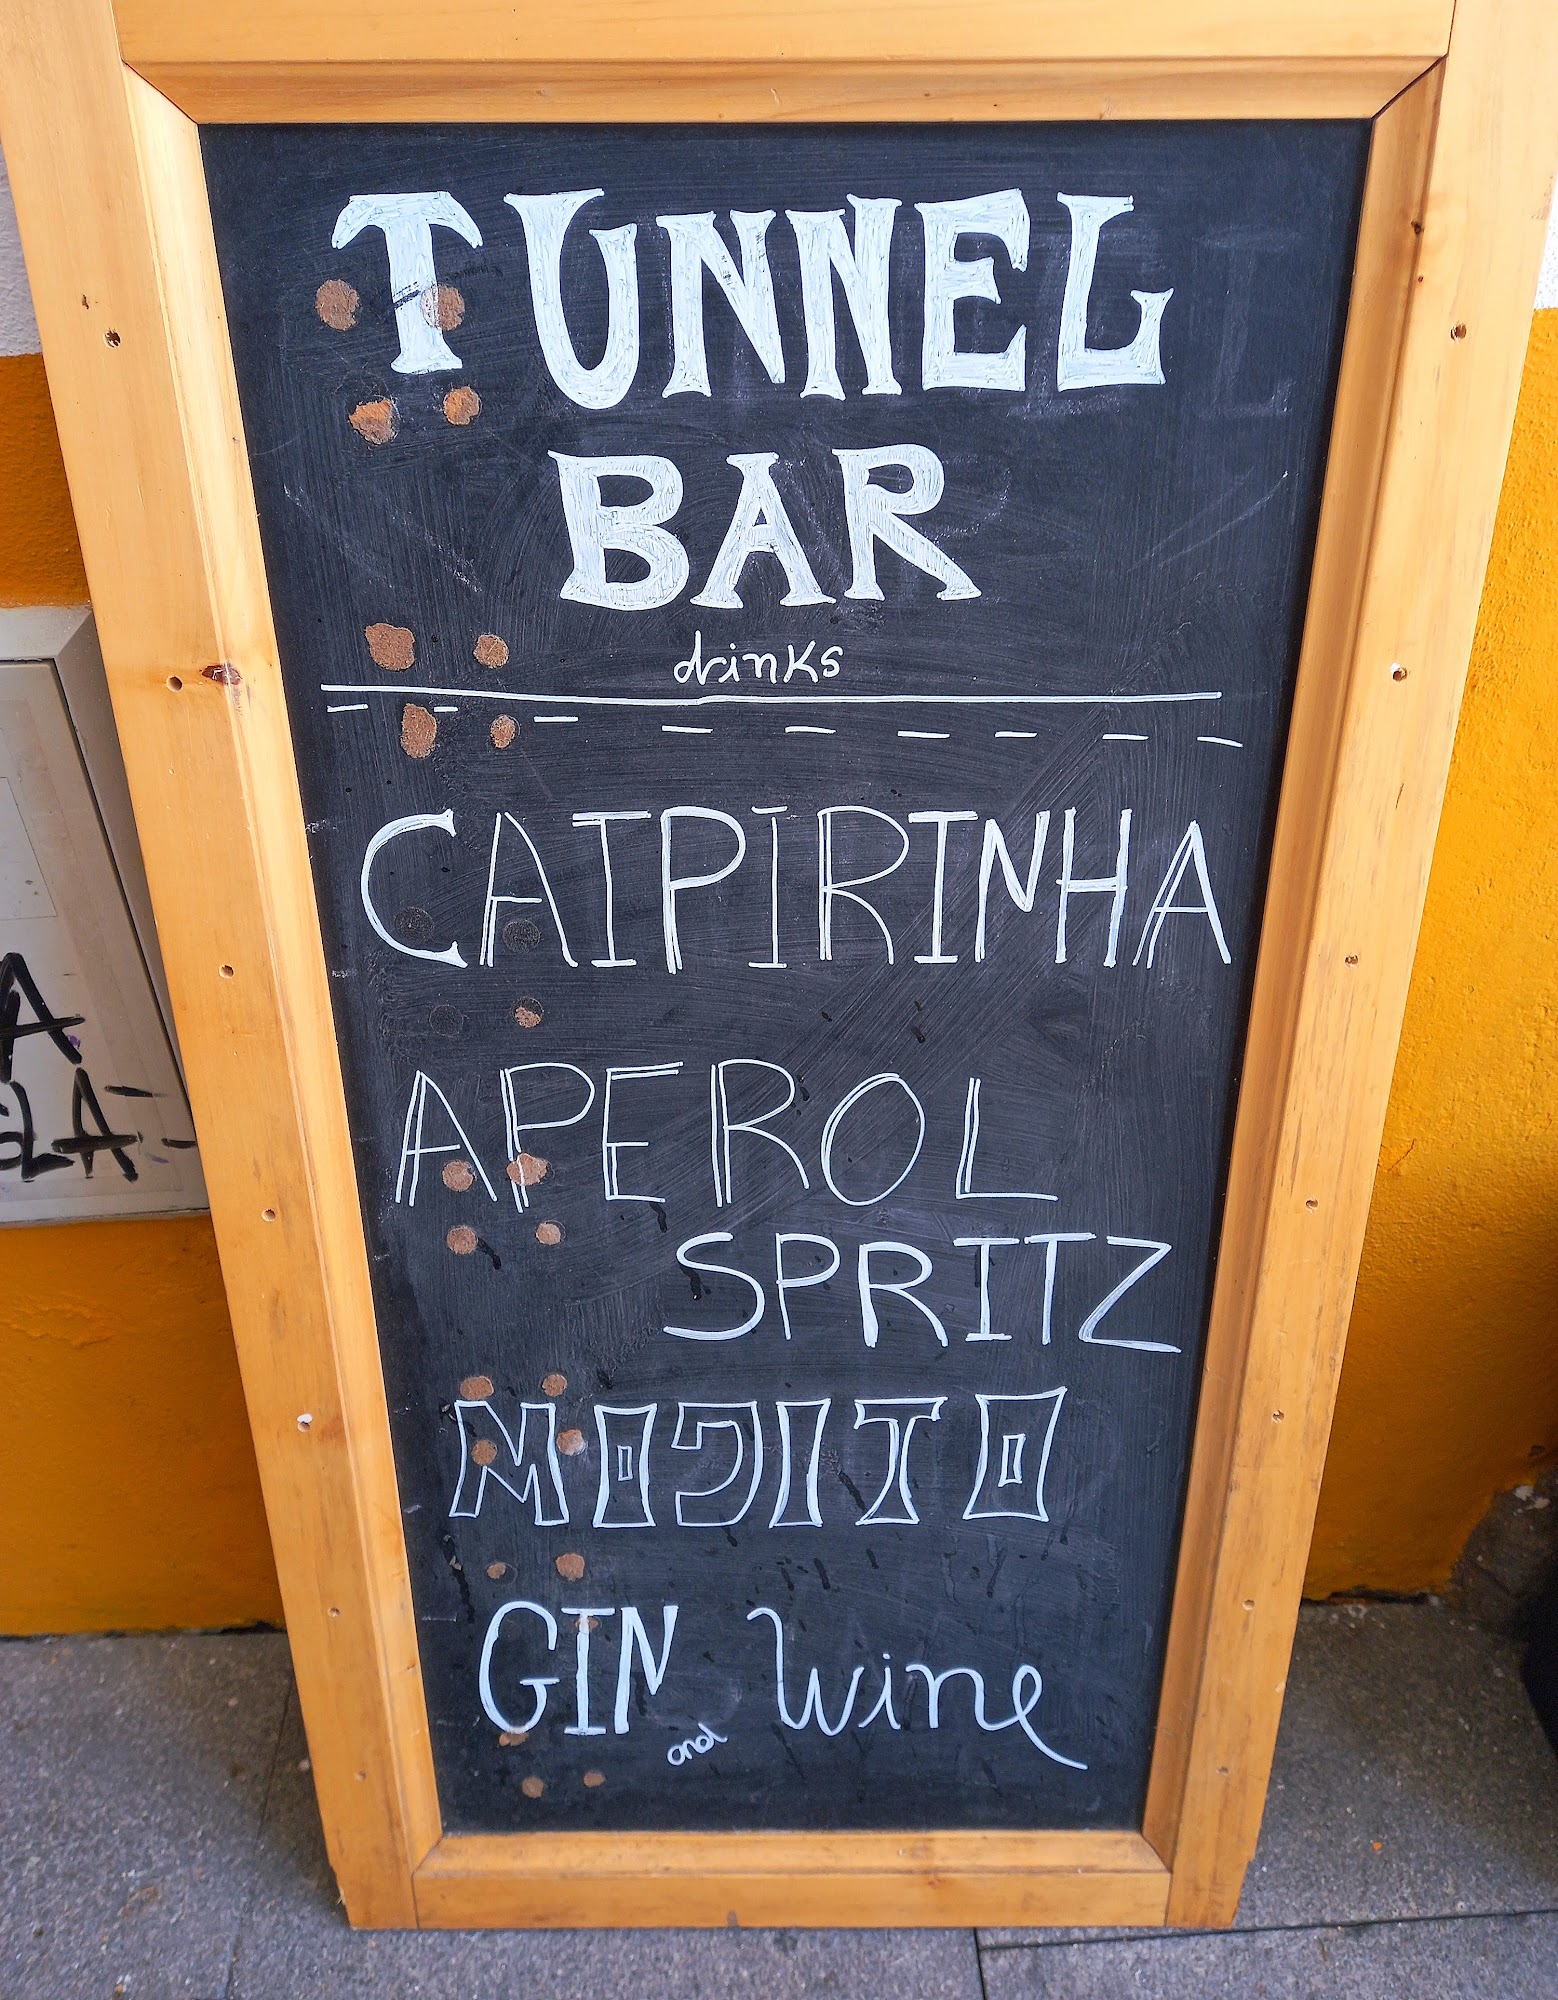 TUNNEL
BAR
drinks
CAIPIRINHA
APEROL
SPRITZ
MOJITO
GIN and Wine